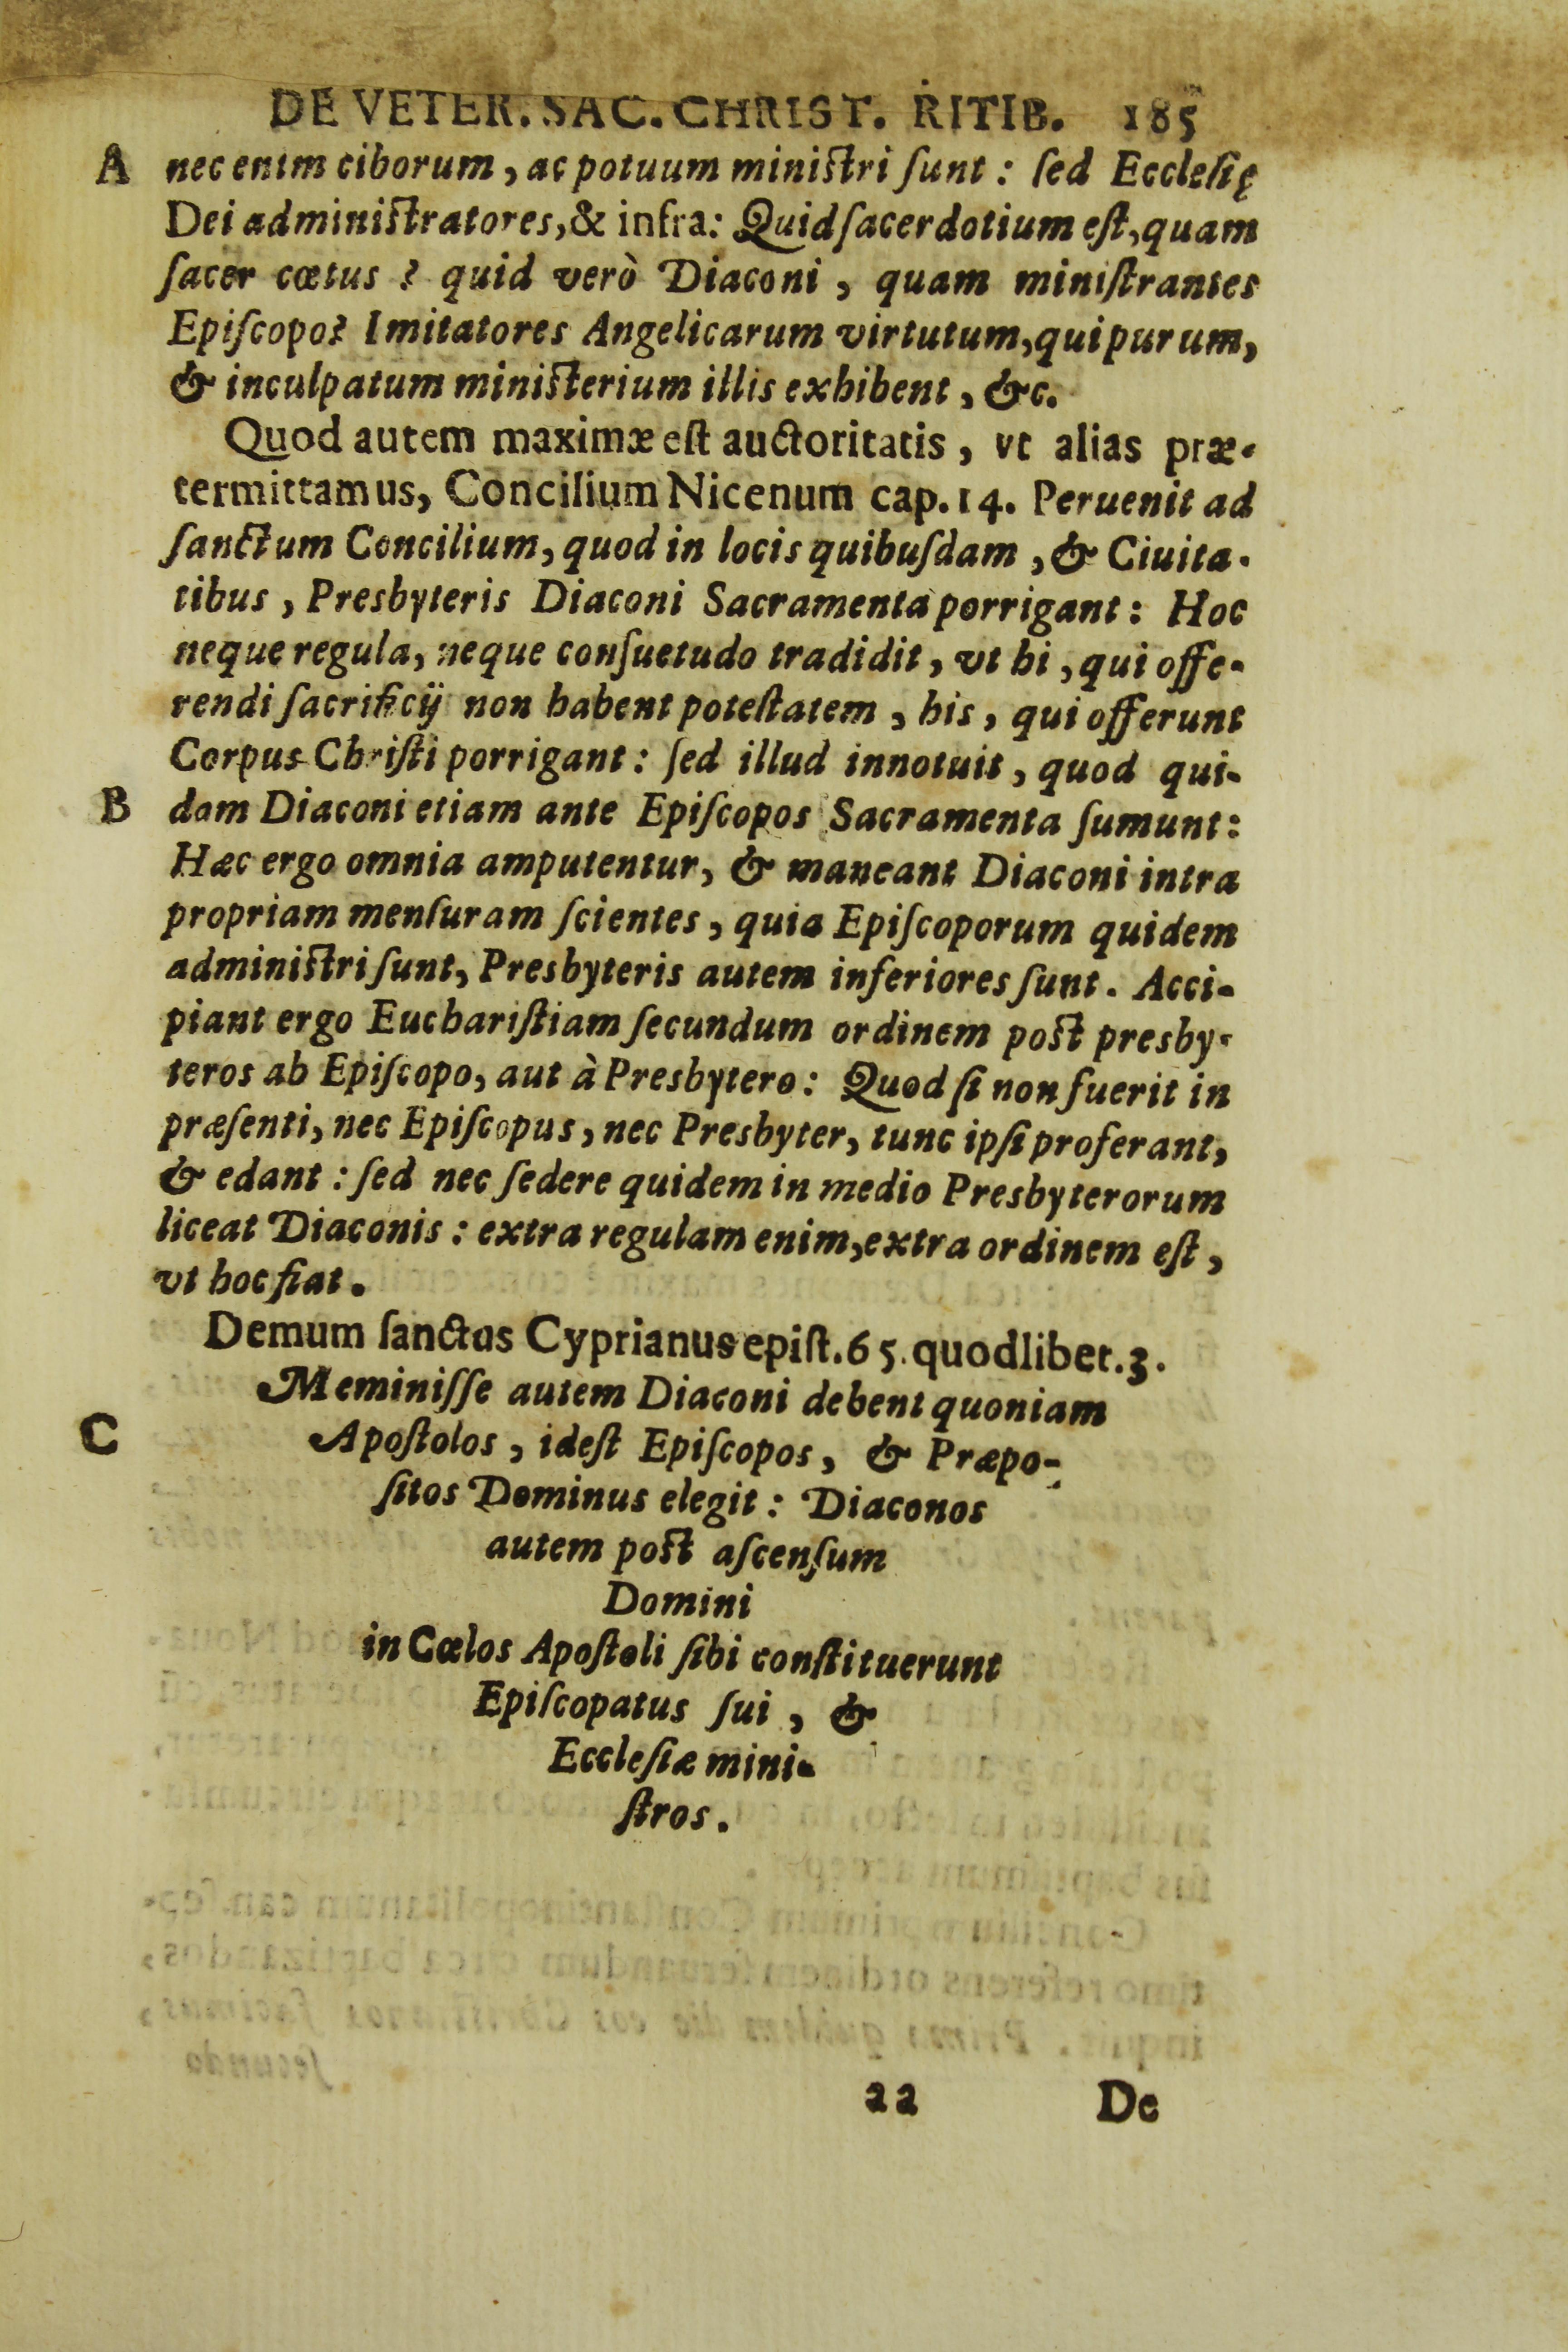 DE VETER. SAC. CHRIST. RITIB. 185
A nec enim ciborum, ac potuum miniſtri ſunt: ſed Eccleſię
Dei adminiſtratores, & infra: Quid ſacerdotium eſt, quam
ſacer cœtus? quid verò Diaconi, quam miniſtrantes
Epiſcopo? Imitatores Angelicarum virtutum, qui purum,
& inculpatum miniſterium illis exhibent, &c.
Quod autem maximæ eſt auctoritatis, vt alias præ-
termittamus, Concilium Nicenum cap. 14. Peruenit ad
ſanctum Concilium, quod in locis quibuſdam, & Ciuita-
tibus, Presbyteris Diaconi Sacramenta porrigant: Hoc
neque regula, neque conſuetudo tradidit, vt hi, qui offe-
rendi ſacrificij non habent poteſtatem, his, qui offerunt
Corpus Chriſti porrigant: ſed illud innotuit, quod qui-
B dam Diaconi etiam ante Epiſcopos Sacramenta ſumunt:
Hæc ergo omnia amputentur, & maneant Diaconi intra
propriam menſuram ſcientes, quia Epiſcoporum quidem
adminiſtri ſunt, Presbyteris autem inferiores ſunt. Acci-
piant ergo Euchariſtiam ſecundum ordinem poſt presby-
teros ab Epiſcopo, aut à Presbytero: Quod ſi non fuerit in
præſenti, nec Epiſcopus, nec Presbyter, tunc ipſi proferant,
& edant: ſed nec ſedere quidem in medio Presbyterorum
liceat Diaconis: extra regulam enim, extra ordinem eſt,
vt hoc fiat.
Demum ſanctus Cyprianus epiſt. 65. quodlibet. 3.
Meminiſſe autem Diaconi debent quoniam
C Apoſtolos, ideſt Epiſcopos, & Præpo-
ſitos Dominus elegit: Diaconos
autem poſt aſcenſum
Domini
in Cœlos Apoſtoli ſibi conſtituerunt
Epiſcopatus ſui, &
Eccleſiæ mini-
ſtros.
aa De